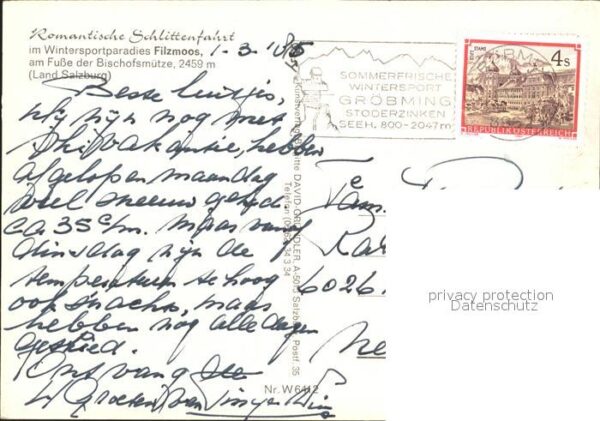 Romantische Schlittenfahrt
im Wintersportparadies Filzmoos,
am Fuße der Bischofsmütze, 2459 m
(Land Salzburg)
1-3-'85
Beste
wy zijn nog met
skivakantie, hebben
afgelopen maandag
veel sneeuw gehad
ca 35 c/m. maar vanaf
dinsdag zijn de
temperaturen te hoog
ook snachts, maar
hebben nog alle dagen
geskied.
Ontvang de
Groeten van
SOMMERFRISCHE
WINTERSPORT
GRÖBMING
STODERZINKEN
SEEH. 800-2047m
STIFT STAMS
4 S
REPUBLIK ÖSTERREICH
Fam.
6026
Ne
DAVID-GRÜNDLER A-5051 Salzburg Postf. 35
Telefon
Nr. W 6412
privacy protection
Datenschutz